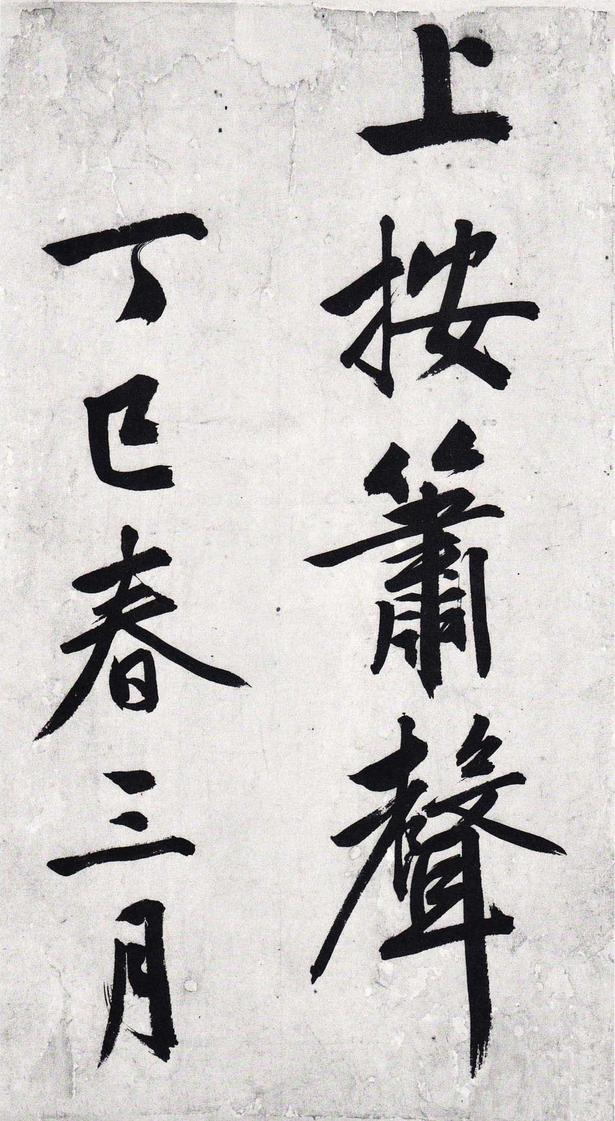 上按簫聲
丁巳春三月